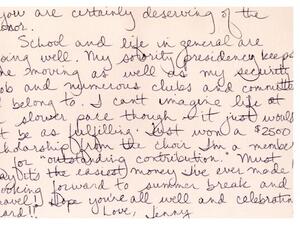 you are certainly deserving of the
onor.
School and life in general are
oing well. My sorority presidency keeps
me moving as well as my security
ob and numerous clubs and committe
I belong to. I can't imagine life at
slower pace though - it just would
t be as fulfilling. Just won a $2500
cholarship from the choir I'm a member
for "outstanding contribution." Must
ay it's the easiest money I've ever made!
ooking forward to summer break and
ravel! Hope you're all well and celebratin
ard!!
Love, Jenny